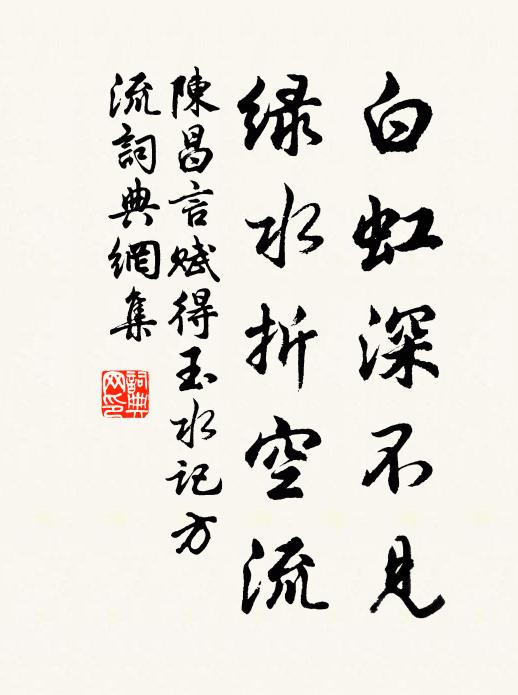 白虹深不見
綠水折空流
陳昌言賦得玉水記方
流詞典網集
詞典
网印